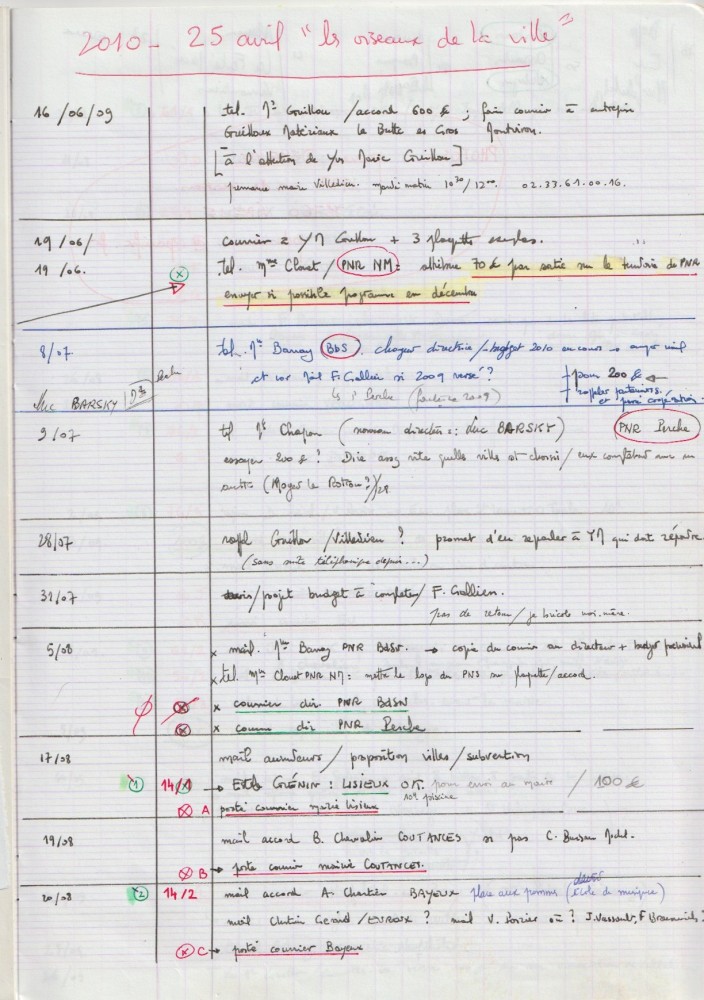 2010 - 25 avril "les oiseaux de la ville"
16/06/09 tel. Mr Guillou /accord 600 € ; faire courrier à entreprise
Guilloux Matériaux la Butte es Gros Montviron.
[à l'attention de Yves Marie Guillou]
permanence mairie Villedieu. mardi matin 10 30/12 00. 02.33.61.00.16.
19/06/ courrier à YM Guillou + 3 plaquettes
19/06. tel. Mme Clouet / PNR NM : attribue 70 € par sortie sur le territoire du PNR
envoyer si possible programme en décembre
8/07 tel. Mme Barray BdS. charger directrice / budget 2010 en cours →
et voir F. Gallien si 2009 versé ?
pour 200 €
rappeler partenaires.
Perche (2009)
Luc BARSKY
9/07 tel Mr Chapon (nouveau directeur : Luc BARSKY) PNR Perche
essayer 200 € ? Dire assez vite quelle ville est choisie / eux comptabilisent sur un
28/07 rappel Guillou /Villedieu ? promet d'en reparler à YM qui doit répondre.
(sans suite téléphonique depuis...)
31/07 /projet budget à compléter / F. Gallien.
pas de retour / je bricole moi-même.
5/08 x mail. Mme Barray PNR BdSN. → copie du courrier au directeur + budget prévisionnel
x tel. Mme Clouet PNR NM : mettre le logo du PNR sur plaquette/accord.
x courrier dir. PNR BdSN
x courrier dir PNR Perche
17/08 mail aux villes / proposition villes / subvention
1 14/1 → Estelle GUÉNIN : LISIEUX OK pour envoi au maire / 100 €
piscine
A posté courrier mairie Lisieux
19/08 mail accord B. Chevalier COUTANCES si pas C. Buisson
B → posté courrier mairie COUTANCES.
20/08 2 14/2 mail accord A. Chartier BAYEUX place aux pommes (école de musique)
mail Christian Gérard /EVREUX ? mail V. Poirier ? J. Vassault, F
C → posté courrier Bayeux